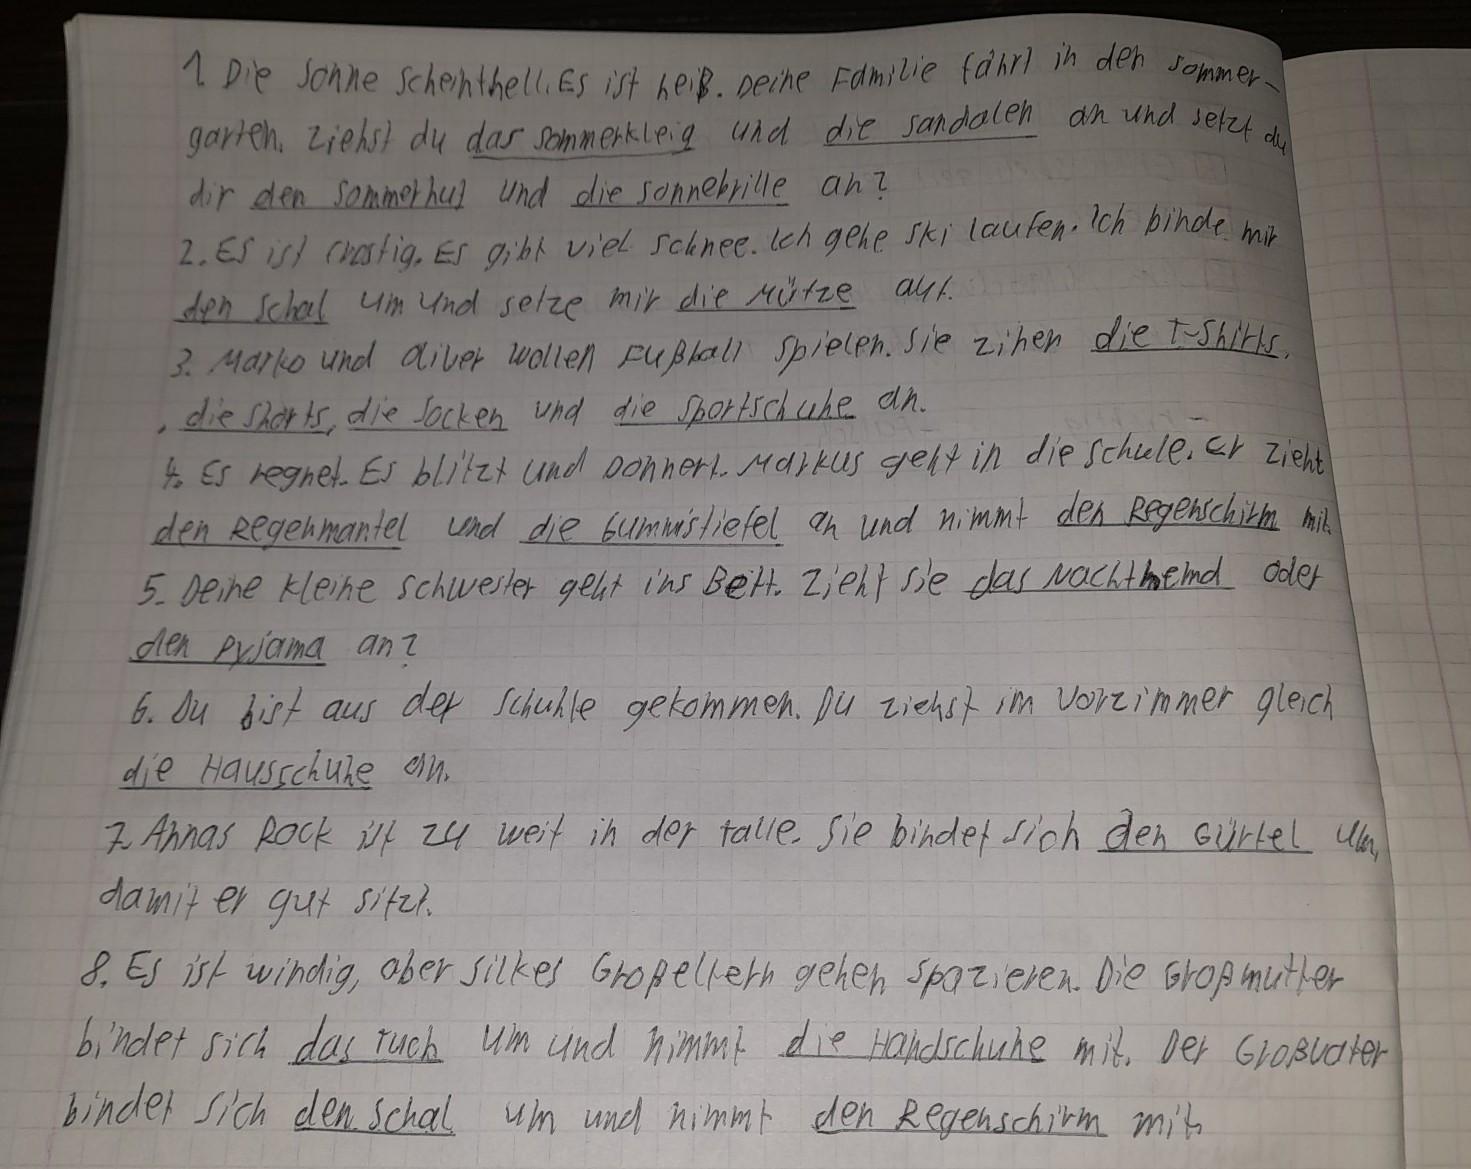 1. Die Sonne scheinthell. Es ist heiß. Deine Familie fährt in den sommer-
garten. Ziehst du das sommerkleig und die sandalen an und setzt du
dir den Sommerhut und die sonnebrille an?
2. Es ist frostig. Es gibt viel Schnee. Ich gehe ski laufen. Ich binde mir
den Schal um und setze mir die Mütze auf.
3. Marko und Oliver wollen Fußball spielen. Sie zihen die T-Shirts,
, die Shorts, die Socken und die Sportschuhe an.
4. Es regnet. Es blitzt und Donnert. Markus geht in die schule. Er zieht
den Regenmantel und die Gummistiefel an und nimmt den Regenschirm mit.
5. Deine kleine Schwester geht ins Bett. Zieht sie das Nachthemd oder
den Pyjama an?
6. Du bist aus der Schuhle gekommen. Du ziehst im Vorzimmer gleich
die Hausschuhe an.
7. Annas Rock ist zu weit in der Talle. Sie bindet sich den Gürtel um,
damit er gut sitzt.
8. Es ist windig, aber silkes Großeltern gehen spazieren. Die Großmutter
bindet sich das Tuch um und nimmt die Handschuhe mit. Der Großvater
bindet sich den Schal um und nimmt den Regenschirm mit.